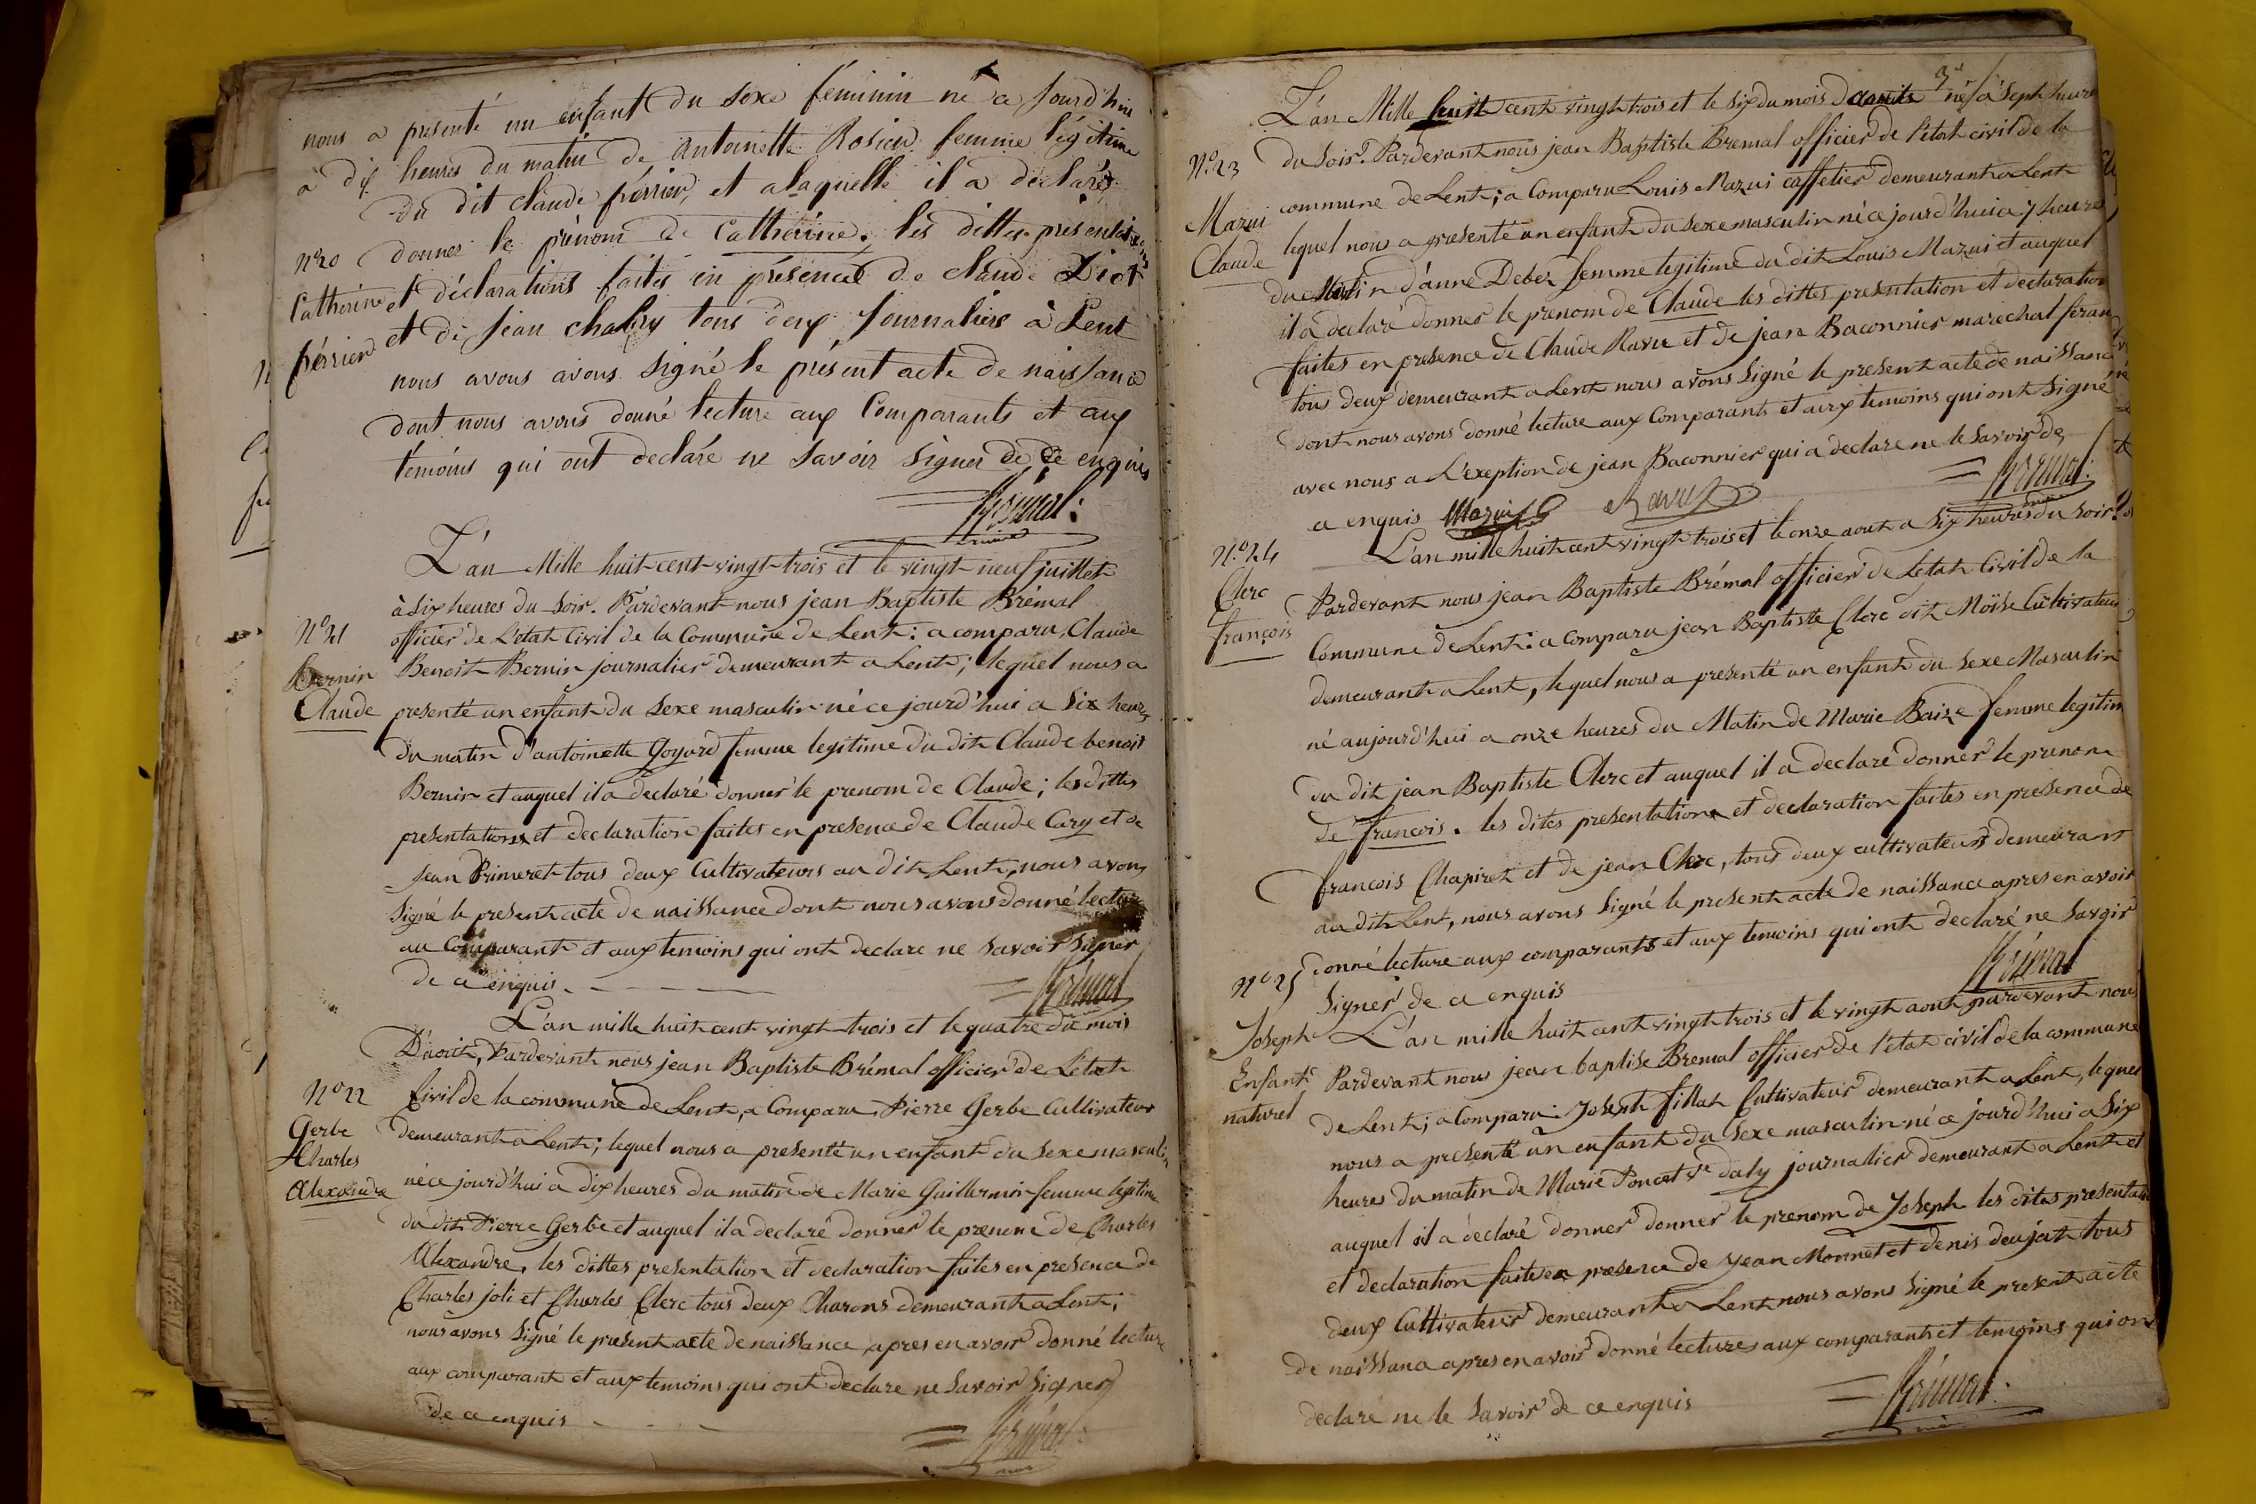 nous a presenté un enfant du sexe féminin né ce jourd'hui
à dix heures du matin de Antoinette Rosier femme légitime
du dit claude férrier, et alaquelle il a déclaré
N°20
Catherine
férrier
donner le prénom de Catherine. les dittes présentations
et déclarations faites en présence de claude Diot
et de Jean chabry tous deux Journaliers à Lent
nous avous avons signé le présent acte de naissance
dont nous avons donné lecture aux Comparants et aux
témoins qui ont declaré ne savoir signer de ce enquis
Brémal
L'an Mille huit-cent-vingt-trois et le vingt neuf juillet
à six heures du soir. Pardevant nous jean Baptiste Brémal
N°21
Bernin
Claude
officier de L'etat Civil de la Commune de Lent: a comparu, Claude
Benoit Bernin journalier demeurant a Lent; lequel nous a
presenté un enfant du sexe masculin né ce jourd'hui a six heures
du matin d'antoinette Goyard femme legitime du dit Claude benoit
Bernin et auquel il a declaré donner le prenom de Claude; les dittes
presentations et declaration faites en presence de Claude Cary et de
Jean Primeret tous deux Cultivateurs au dit Lent, nous avons
signé le present acte de naissance dont nous avons donné lecture
au Comparant et aux temoins qui ont declare ne savoir signer
de ce enquis.
Brémal
L'an mille huit cent vingt-trois et le quatre du mois
D'aout, Pardevant nous jean Baptiste Brémal officier de L'etat
N°22
Gerbe
Charles
Alexandre
Civil de la commune de Lent, a Comparu Pierre Gerbe Cultivateur
demeurant a Lent; lequel nous a presenté un enfant du sexe masculin
né ce jourd'hui a dix heures du matin de Marie Guillermin femme legitime
du dit Pierre Gerbe et auquel il a declaré donner le prenom de Charles
Alexandre, les dittes presentation et declaration faites en presence de
Charles joli et Charles Clerc tous deux Charons demeurant a Lent,
nous avons signé le present acte de naissance, apres en avoir donné lecture
aux comparant et aux temoins qui ont declare ne savoir signer
de ce enquis
Brémal
L'an Mille huit cent vingt trois et le six du mois à Sept heure
N°23
Mazui
Claude
du soir. Pardevant nous jean Baptiste Bremal officier de l'etat civil de la
commune de Lent; a Comparu Louis Mazui caffetier demeurant a Lent
lequel nous a presenté un enfant du sexe masculin né ce jourd'hui a 7 heures
du Matin d'anne Deber femme legitime du dit Louis Mazui et auquel
il a declaré donner le prenom de Claude les dittes presentation et declaration
faites en presence de Claude Ravu et de jean Baconnier marechal feran
tous deux demeurant a Lent nous avons signé le present acte de naissance
dont nous avons donné lecture aux Comparant et aux temoins qui ont signé
avec nous a L'exeption de jean Baconnier qui a declare ne le savoir de
ce enquis Mazui Ravu
Brémal
N°24
Clerc
françois
L'an mille huit cent vingt-trois et le onze aout a six heures du soir.
Pardevant nous jean Baptiste Brémal officier de L'etat Civil de la
Commune de Lent: a comparu jean Baptiste Clerc dit Moïse Cultivateur
demeurant a Lent, lequel nous a presenté un enfant du sexe Masculin
né aujourd'hui a onze heures du Matin de Marie Baize femme legitime
du dit jean Baptiste Clerc et auquel il a declaré donner le prenom
de francois. les dites presentations et declaration faites en presence de
francois Chapiret et de jean Clerc, tous deux cultivateurs demeurant
au dit Lent, nous avons signé le present acte de naissance apres en avoir
donné lecture aux comparants et aux temoins qui ont declaré ne savoir
signer de ce enquis
Brémal
N°25
Joseph
Enfant
naturel
L'an mille huit cent vingt trois et le vingt aout pardevant nous
Pardevant nous jean baptise Bremal officier de l'état civil de la commune
de Lent; a Comparu Joseph fillat Cultivateur demeurant a Lent, lequel
nous a presenté un enfant du sexe masculin né ce jourd'hui a six
heures du matin de Marie Poncet Ve daly journalier demeurant a Lent et
auquel il a declaré donner donner le prenom de Joseph les dites presentation
et declaration faite en presence de jean Monnet et denis deujat tous
deux Cultivateur demeurant a Lent nous avons signé le present acte
de naissance apres en avoir donné lecture aux comparant et temoins qui ont
declaré ne le savoir de ce enquis
Brémal